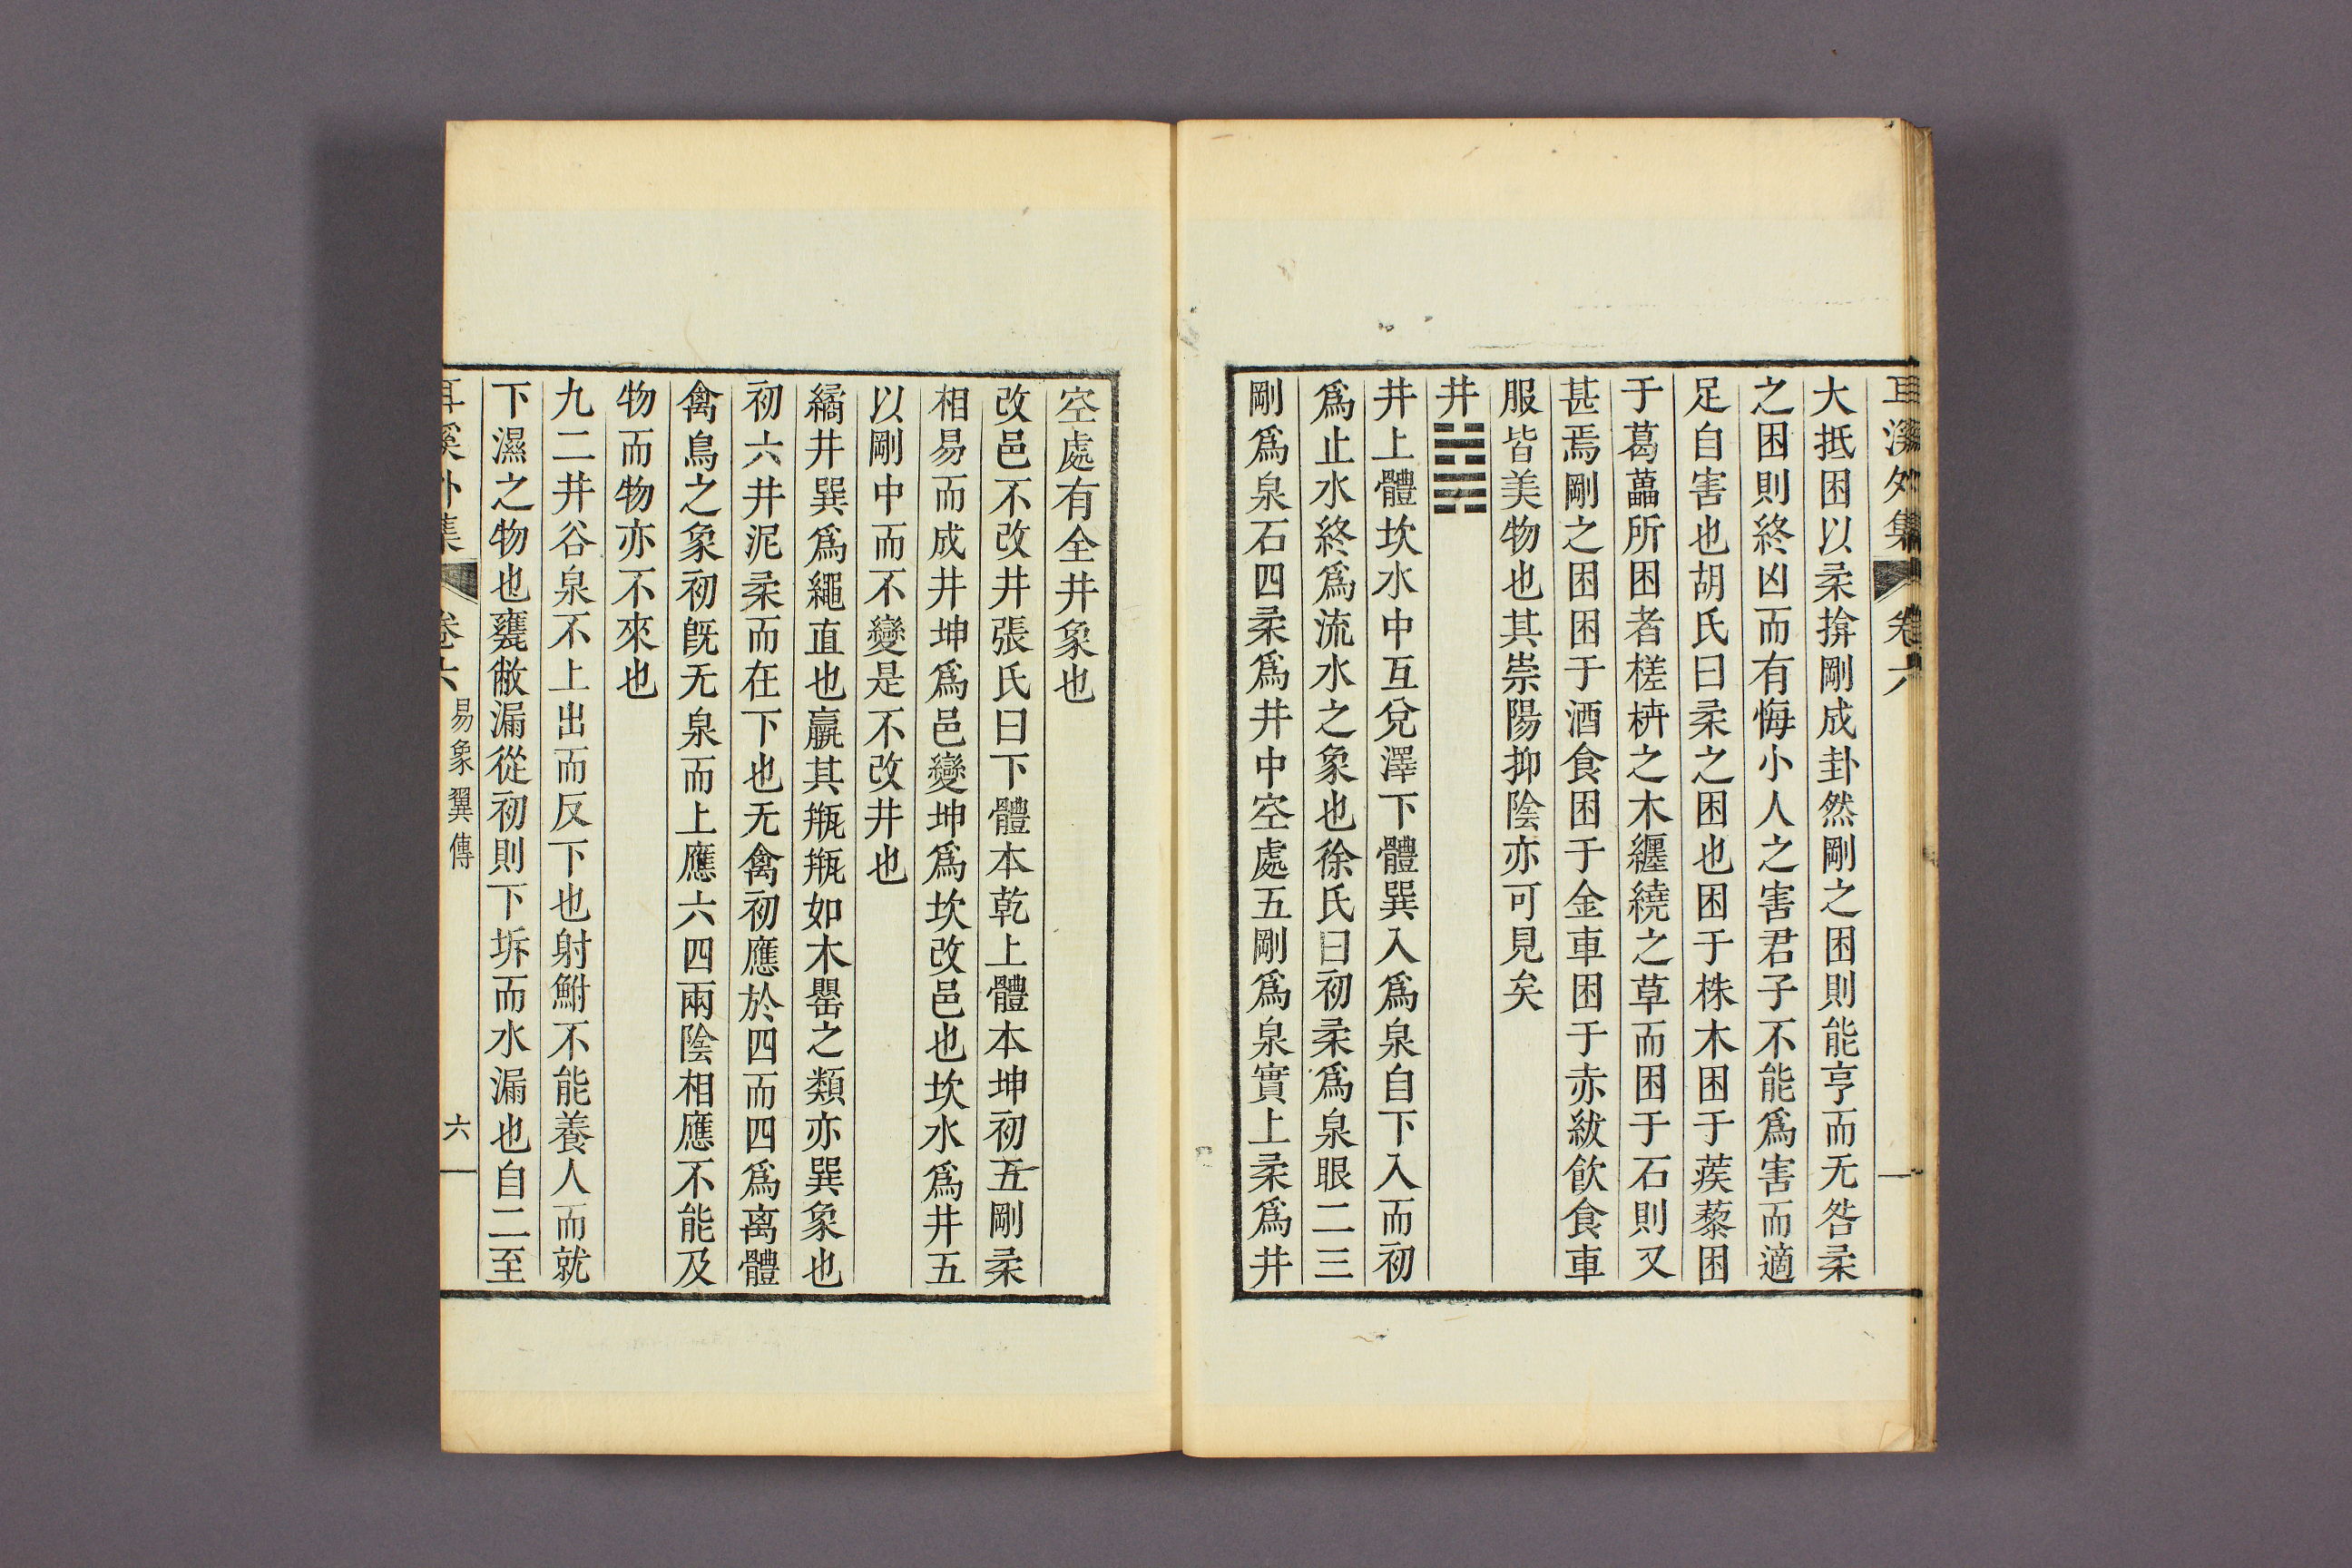 耳溪外集 卷六
大抵困以柔揜剛成卦然剛之困則能亨而无咎柔
之困則終凶而有悔小人之害君子不能爲害而適
足自害也胡氏曰柔之困也困于株木困于蒺藜困
于葛藟所困者槎枿之木纏繞之草而困于石則又
甚焉剛之困困于酒食困于金車困于赤紱飮食車
服皆美物也其崇陽抑陰亦可見矣
井䷯
井上體坎水中互兌澤下體巽入爲泉自下入而初
爲止水終爲流水之象也徐氏曰初柔爲泉眼二三
剛爲泉石四柔爲井中空處五剛爲泉實上柔爲井
空處有全井象也
改邑不改井張氏曰下體本乾上體本坤初五剛柔
相易而成井坤爲邑變坤爲坎改邑也坎水爲井五
以剛中而不變是不改井也
繘井巽爲繩直也羸其瓶瓶如木罌之類亦巽象也
初六井泥柔而在下也无禽初應於四而四爲离體
禽鳥之象初旣无泉而上應六四兩陰相應不能及
物而物亦不來也
九二井谷泉不上出而反下也射鮒不能養人而就
下濕之物也甕敝漏從初則下坼而水漏也自二至
耳溪外集 卷六 易象翼傳 六